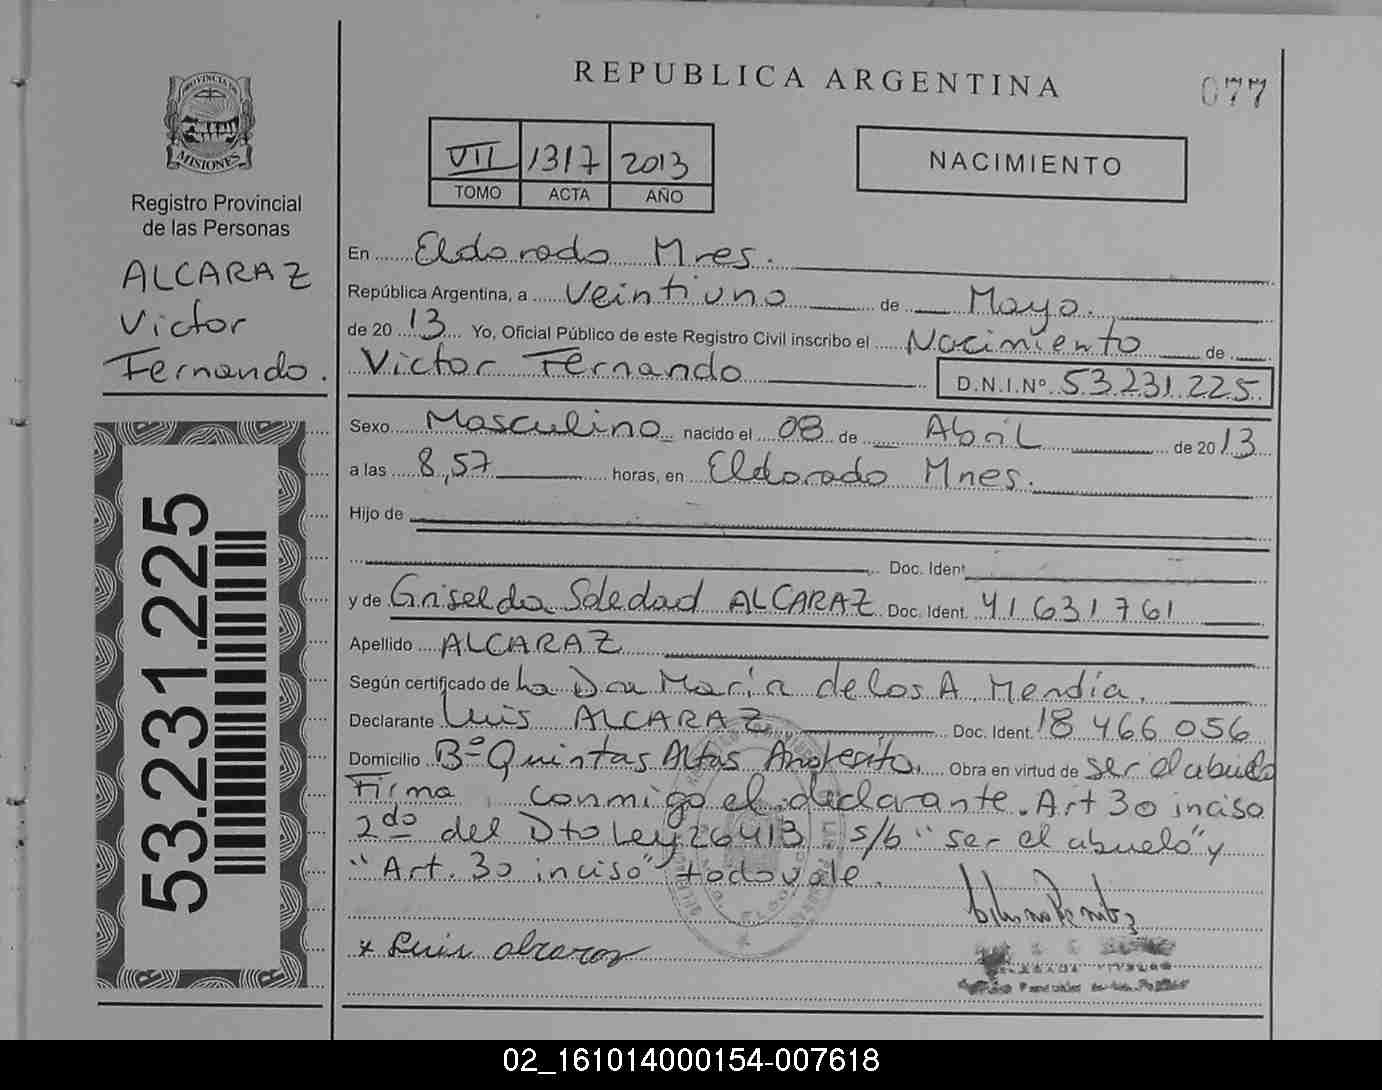 REPUBLICA ARGENTINA
077
PROVINCIA DE
MISIONES
Registro Provincial
de las Personas
ALCARAZ
Victor
Fernando.
53.231.225
VII 1317 2013
TOMO ACTA AÑO
NACIMIENTO
En Eldorado Mnes.
República Argentina, a Veintiuno de Mayo.
de 20 13 Yo, Oficial Público de este Registro Civil inscribo el Nacimiento de
Victor Fernando D.N.I.Nº 53.231.225
Sexo Masculino nacido el 08 de Abril de 20 13
a las 8,57 horas, en Eldorado Mnes.
Hijo de
Doc. Ident.
y de Griselda Soledad ALCARAZ Doc. Ident. 41 631 761
Apellido ALCARAZ
Según certificado de La Dra María de los A. Mendia.
Declarante Luis ALCARAZ Doc. Ident. 18 466 056
Domicilio Bº Quintas Altas Obra en virtud de ser el abuelo
Firma conmigo el declarante. Art 30 inciso
2do del Dto Ley 26413 s/b "ser el abuelo" y
"Art. 30 inciso" todo vale.
x Luis alcaraz
02_161014000154-007618